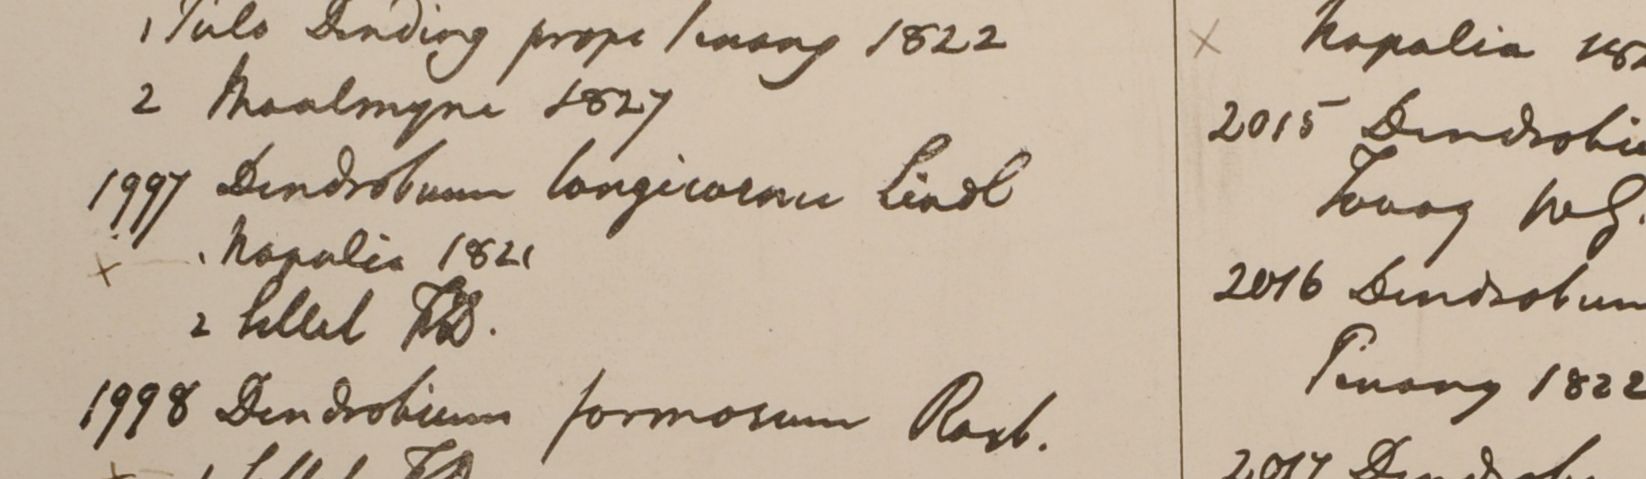 1 Pulo Dinding prope Penang 1822
2 Moalmyne 1827
1997 Dendrobium longicornu Lindl
× 1 Napalia 1821
2 Sillet F.D.
1998 Dendrobium formosum Roxb.
× 1 Sillet F.D.
× Napalia 182
2015 Dendrobiu
Tavoy W.G.
2016 Dendrobium
Penang 1822
2017 Dendrobi